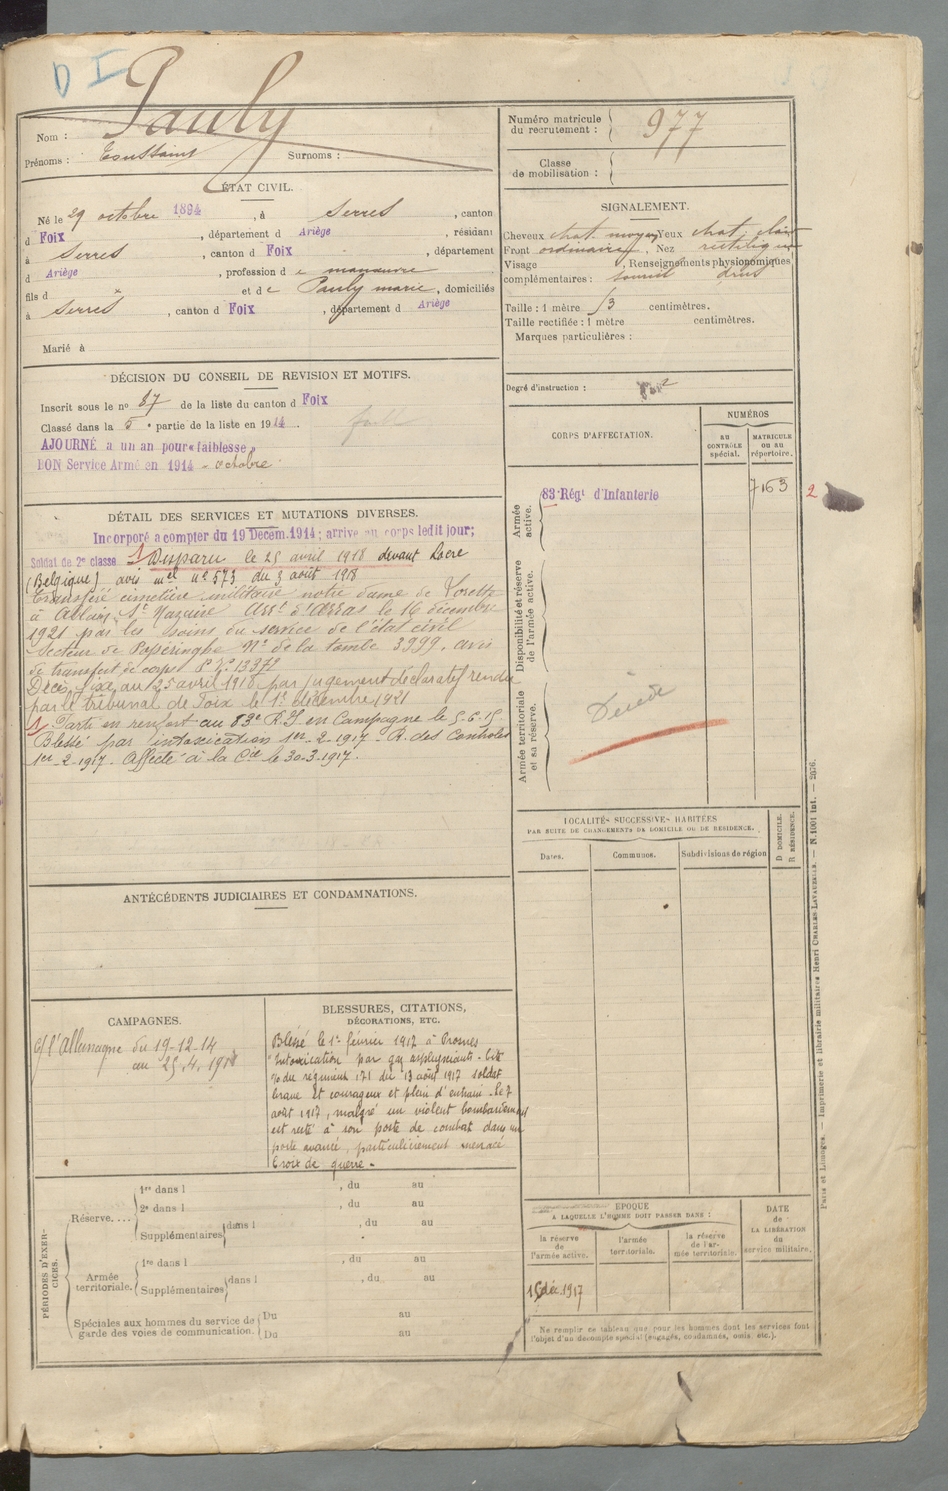 D I
Nom : Pauly
Prénoms : Toussaint Surnoms :
ÉTAT CIVIL.
Né le 29 octobre 1894, à Serres, canton
d Foix, département d Ariège, résidant
à Serres, canton d Foix, département
d Ariège, profession d e manœuvre
fils d x et de Pauly marie, domiciliés
à Serres, canton d Foix, département d Ariège
Marié à
DÉCISION DU CONSEIL DE REVISION ET MOTIFS.
Inscrit sous le no 87 de la liste du canton d Foix
Classé dans la 5e partie de la liste en 1914.
AJOURNÉ a un an pour «faiblesse»
BON Service Armé en 1914 - octobre
DÉTAIL DES SERVICES ET MUTATIONS DIVERSES.
Incorporé a compter du 19 Décem. 1914; arrive au corps ledit jour;
Soldat de 2e classe 1) Disparu le 25 avril 1918 devant Locre
(Belgique) avis mel no 573 du 3 août 1918
Transféré cimetière militaire notre dame de Lorette
à Ablain St Nazaire arrt d'arras le 16 décembre
1921 par les soins du service de l'état civil
Secteur de No de la tombe 3999. avis
de transfert de corps 13379
Décès fixé au 25 avril 1918 par jugement déclaratif rendu
par le tribunal de Foix le 1er décembre 1921
1) Parti en renfort au 83e R.I. en Campagne le 5-6-15
Blessé par intoxication 1er-2-1917 - R. des Controles
1er-2-1917. Affecté à la Cie le 30-3-1917.
ANTÉCÉDENTS JUDICIAIRES ET CONDAMNATIONS.
CAMPAGNES.
c/ l'Allemagne du 19-12-14
au 25.4.1918
BLESSURES, CITATIONS,
DÉCORATIONS, ETC.
Blessé le 1er février 1917 à Prosnes
Intoxication par gaz asphyxiants. Cité
du régiment 171 du 13 août 1917 soldat
brave et courageux et plein d'entrain. Le 7
août 1917, malgré un violent bombardement
est resté à son poste de combat dans un
poste avancé, particulièrement menacé
Croix de guerre.
PÉRIODES D'EXERCICES.
Réserve....
1re dans l , du au
2e dans l , du au
Supplémentaires dans l , du au
Armée territoriale.
1re dans l , du au
Supplémentaires dans l , du au
Spéciales aux hommes du service de garde des voies de communication.
Du au
Du au
Numéro matricule du recrutement : 977
Classe de mobilisation :
SIGNALEMENT.
Cheveux chat. moyen Yeux chat. clair
Front ordinaire, Nez rectiligne
Visage , Renseignements physionomiques
complémentaires :
Taille : 1 mètre 53 centimètres.
Taille rectifiée : 1 mètre centimètres.
Marques particulières :
Degré d'instruction :
CORPS D'AFFECTATION.
NUMÉROS
AU CONTRÔLE spécial.
MATRICULE OU AU répertoire.
Armée active.
83 Régt d'Infanterie
7163
2
Disponibilité et réserve de l'armée active.
Armée territoriale et sa réserve.
Décédé
LOCALITÉS SUCCESSIVES HABITÉES
PAR SUITE DE CHANGEMENTS DE DOMICILE OU DE RÉSIDENCE.
Dates. Communes. Subdivisions de région
D DOMICILE.
R RÉSIDENCE.
ÉPOQUE
A LAQUELLE L'HOMME DOIT PASSER DANS :
la réserve de l'armée active.
l'armée territoriale.
la réserve de l'armée territoriale.
DATE de LA LIBÉRATION du service militaire.
déc. 1917
Ne remplir ce tableau que pour les hommes dont les services font
l'objet d'un décompte spécial (engagés, condamnés, omis, etc.).
Paris et Limoges. — Imprimerie et librairie militaires Henri CHARLES-LAVAUZELLE. — N. 1001 int. — 2076.